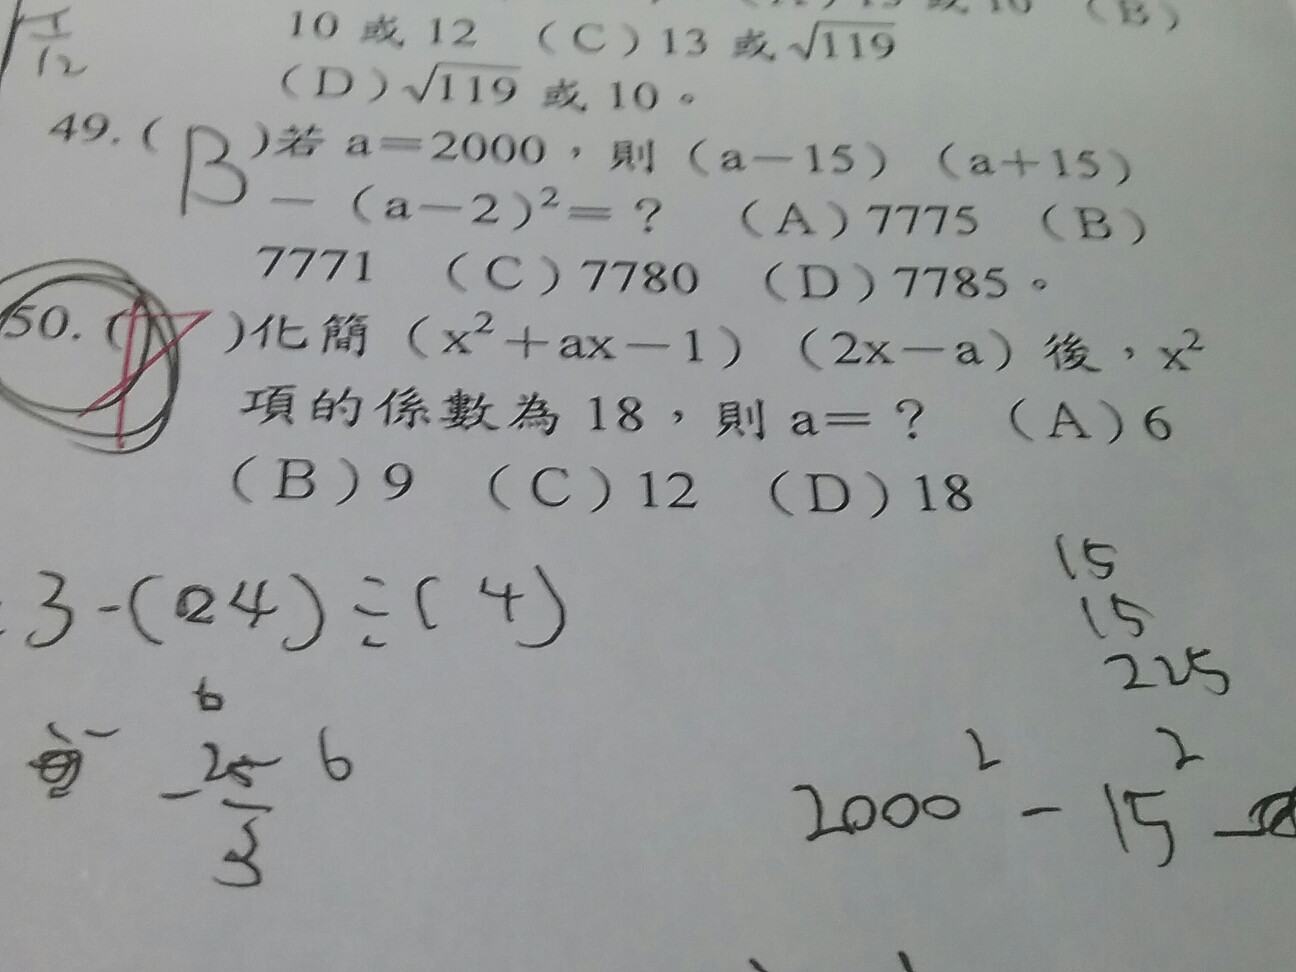 10 或 12 (C) 13 或 √119
(D) √119 或 10。
49. ( B ) 若 a=2000，則 (a-15) (a+15)
- (a-2)²=？ (A) 7775 (B)
7771 (C) 7780 (D) 7785。
50. ( ) 化簡 (x²+ax-1) (2x-a) 後，x²
項的係數為 18，則 a=？ (A) 6
(B) 9 (C) 12 (D) 18
3-(24)÷(4)
15
15
225
6
-25 6
3
2000² - 15² -